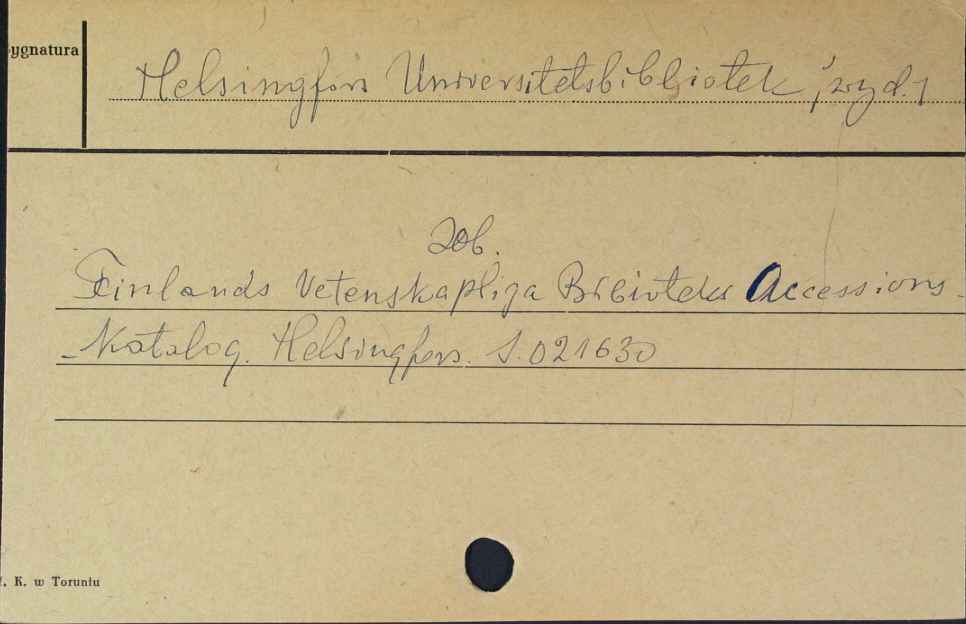 ygnatura
Helsingfors Universitetsbibliotek, wyd.
Zob.
Finlands Vetenskapliga Bibliotekers Accessions-
-Katalog. Helsingfors. S.021630
K. w Toruniu